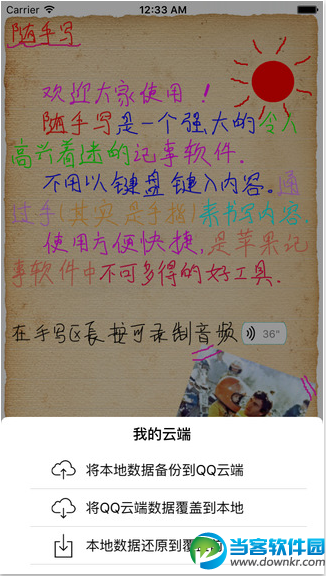 Carrier 12:33 AM
随手写
欢迎大家使用！
随手写是一个强大的令人
高兴着迷的记事软件.
不用以键盘键入内容。通
过手(其实是手指)来书写内容,
使用方便快捷,是苹果记
事软件中不可多得的好工具.
在手写区长按可录制音频 36"
我的云端
将本地数据备份到QQ云端
将QQ云端数据覆盖到本地
本地数据还原到覆盖
当客软件园
www.downkr.com